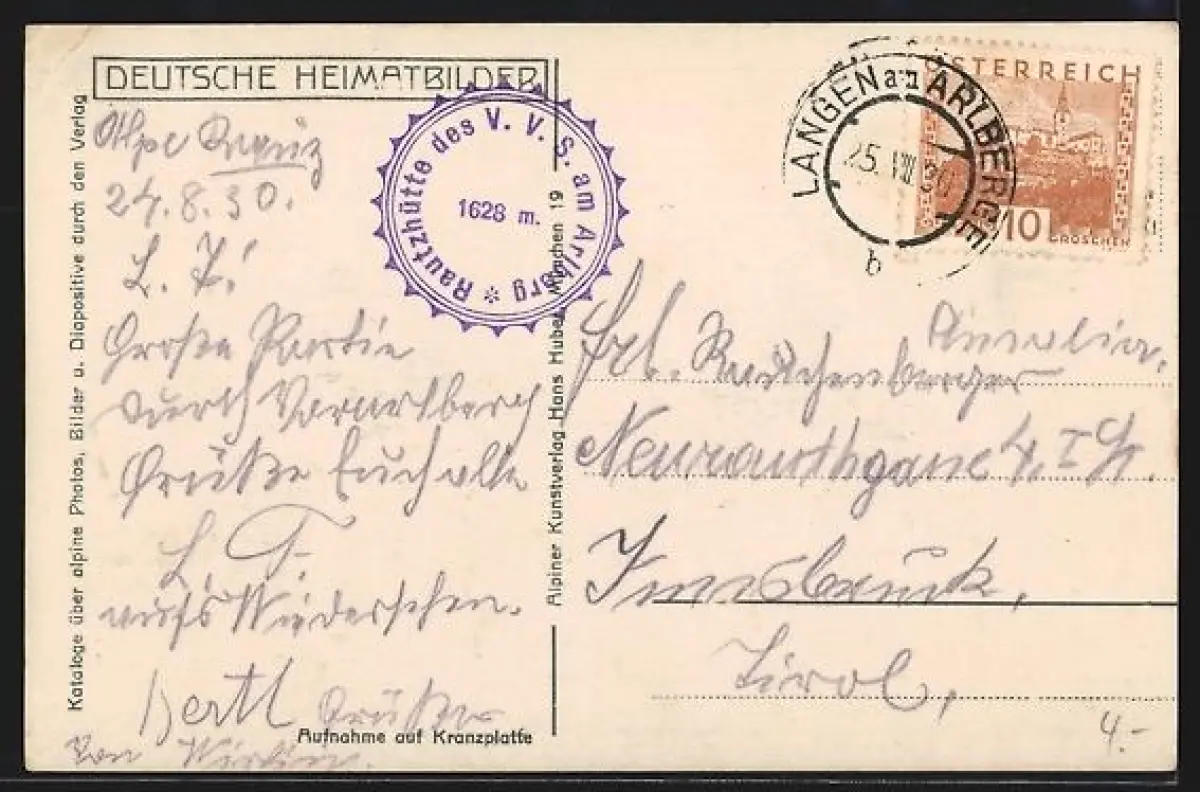 DEUTSCHE HEIMATBILDER
Kataloge über alpine Photos, Bilder u. Diapositive durch den Verlag
Alpe Rauz
24.8.30.
L. F.!
Große Partie
durch Vorarlberg
Grüße Euch alle
L. F.
aufs Wiedersehen.
Bertl
Grüße
von
Aufnahme auf Kranzplatte
Rautzhütte des V. V. S. am Arlbrg *
1628 m.
Alpiner Kunstverlag Hans Huber München 19
LANGEN am ARLBERGE
25. VIII 30
b
ÖSTERREICH
10
GROSCHEN
Frl. Amalia
Neurauthgasse 4. I St.
Innsbruck,
Tirol,
4.-